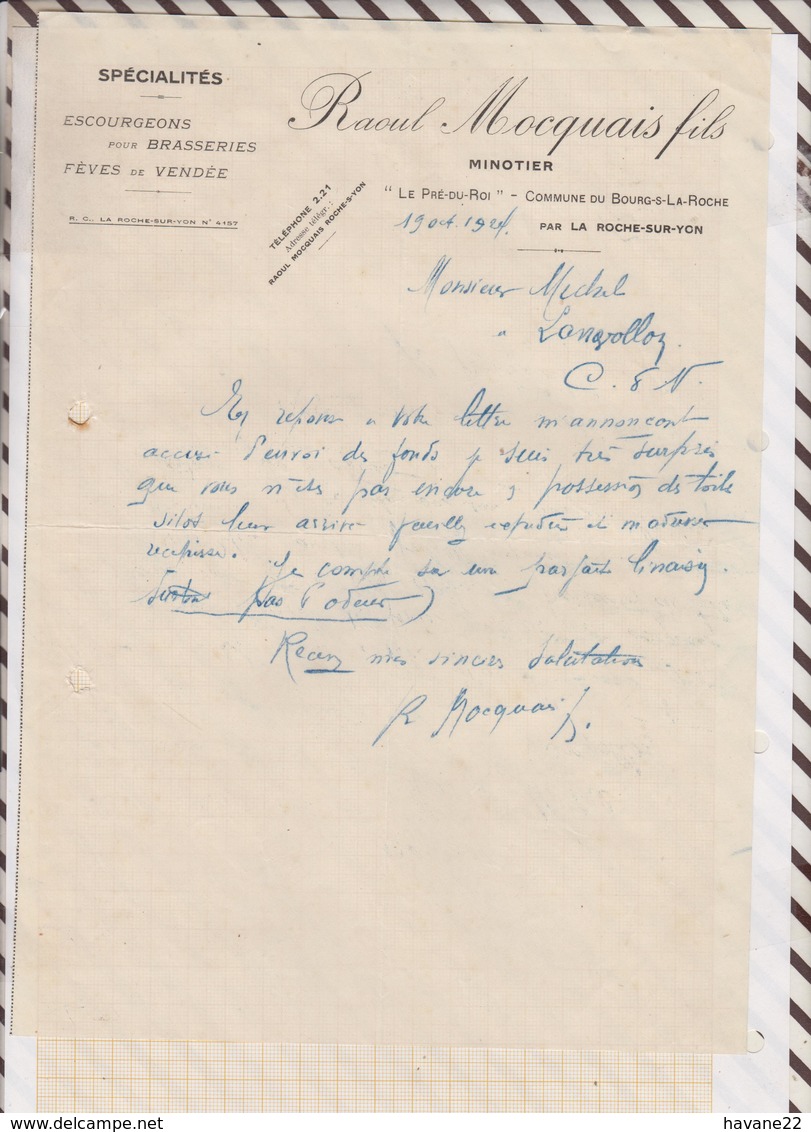 SPÉCIALITÉS
ESCOURGEONS
POUR BRASSERIES
FÈVES DE VENDÉE
R. C., LA ROCHE-SUR-YON N° 4157
TÉLÉPHONE 2.21
Adresse télégr. :
RAOUL MOCQUAIS ROCHE-S-YON
Raoul Mocquais fils
MINOTIER
"LE PRÉ-DU-ROI" - COMMUNE DU BOURG-S-LA-ROCHE
PAR LA ROCHE-SUR-YON
19 oct. 192
Monsieur Michel
Lanvollon
C. d N.
En réponse a votre lettre m'annoncant
d'envoi des fonds je suis très surpris
que vous n'etes pas encore possession
sitot leur arrivé
Je compte sur une parfaite
pas d'odeur)
Recevez mes sincères Salutations
R Mocquais
havane22